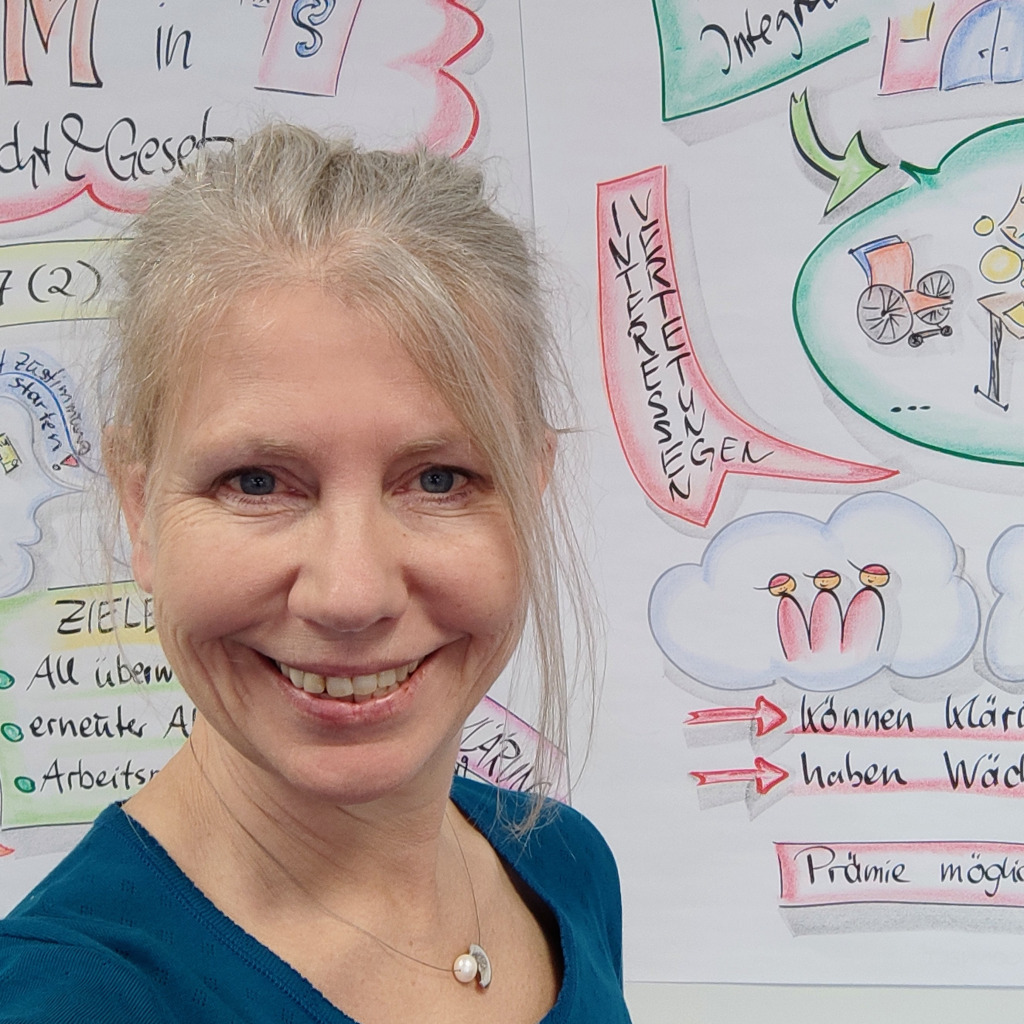 M in
&Geset
7 (2)
Zustimmung
starten!
ZIELE
All überw
erneuter A
Arbeitsp
KLÄRUNG
Integra
INTERESSEN
VERTRETUNGEN
...
können klär
haben Wäc
Prämie möglic